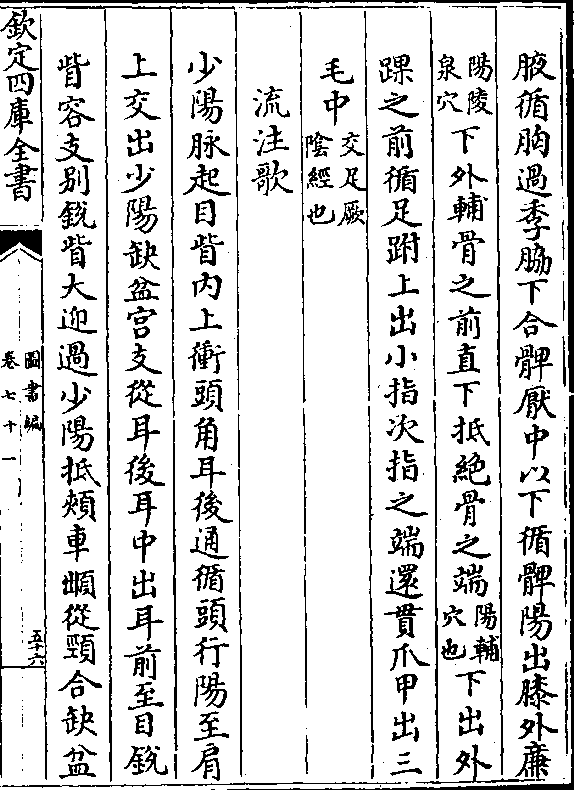 腋循胸過季脇下合髀厭中以下循髀陽出膝外廉
陽陵泉穴下外輔骨之前直下抵絶骨之端陽輔穴也下出外
踝之前循足跗上出小指次指之端還貫爪甲出三
毛中交足厥陰經也
流注歌
少陽脉起目眥内上衝頭角耳後通循頭行陽至肩
上交出少陽缺盆宫支從耳後耳中出耳前至目銳
眥容支别銳眥大迎過少陽抵頰車䪼從頸合缺盆
欽定四庫全書
圖書編
卷七十一
五十六